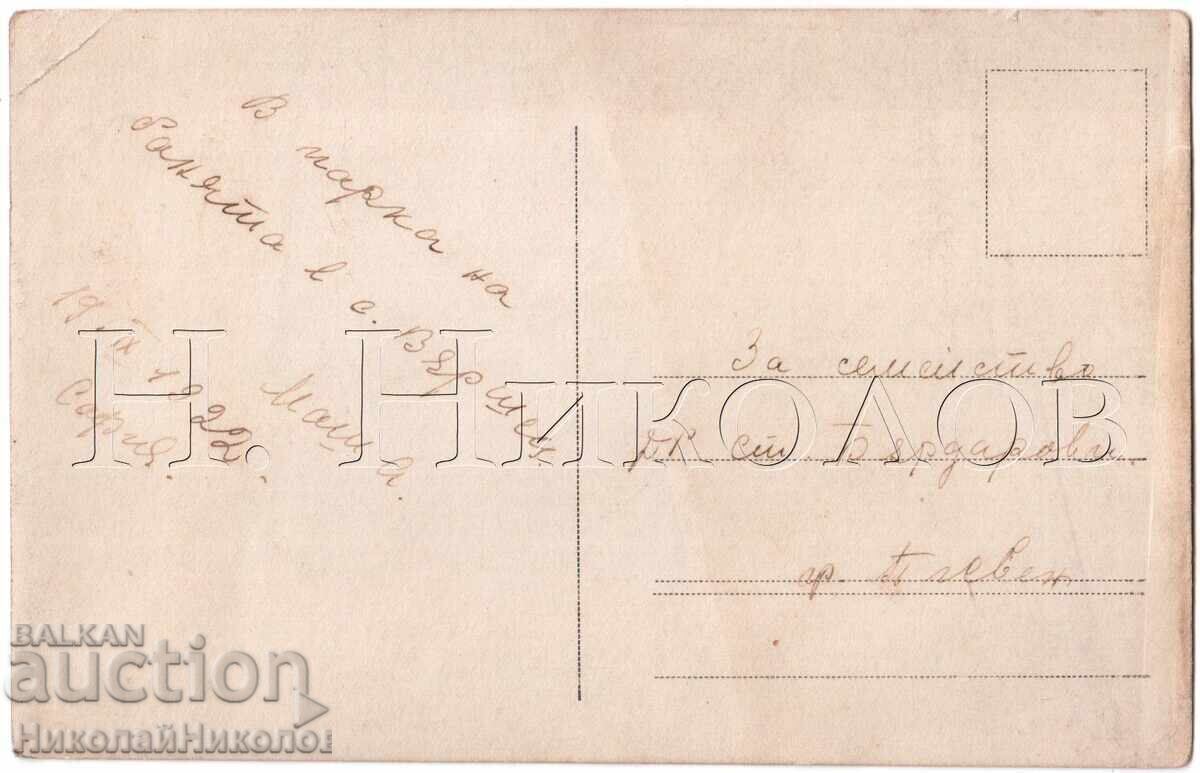 В парка на
банята в с. Вършец.
Маша.
19 IX 1922.
София.
За семейство
Ст. Бърдарови.
гр. Плевен
Н. Николов
BALKAN
auction
НиколайНиколов